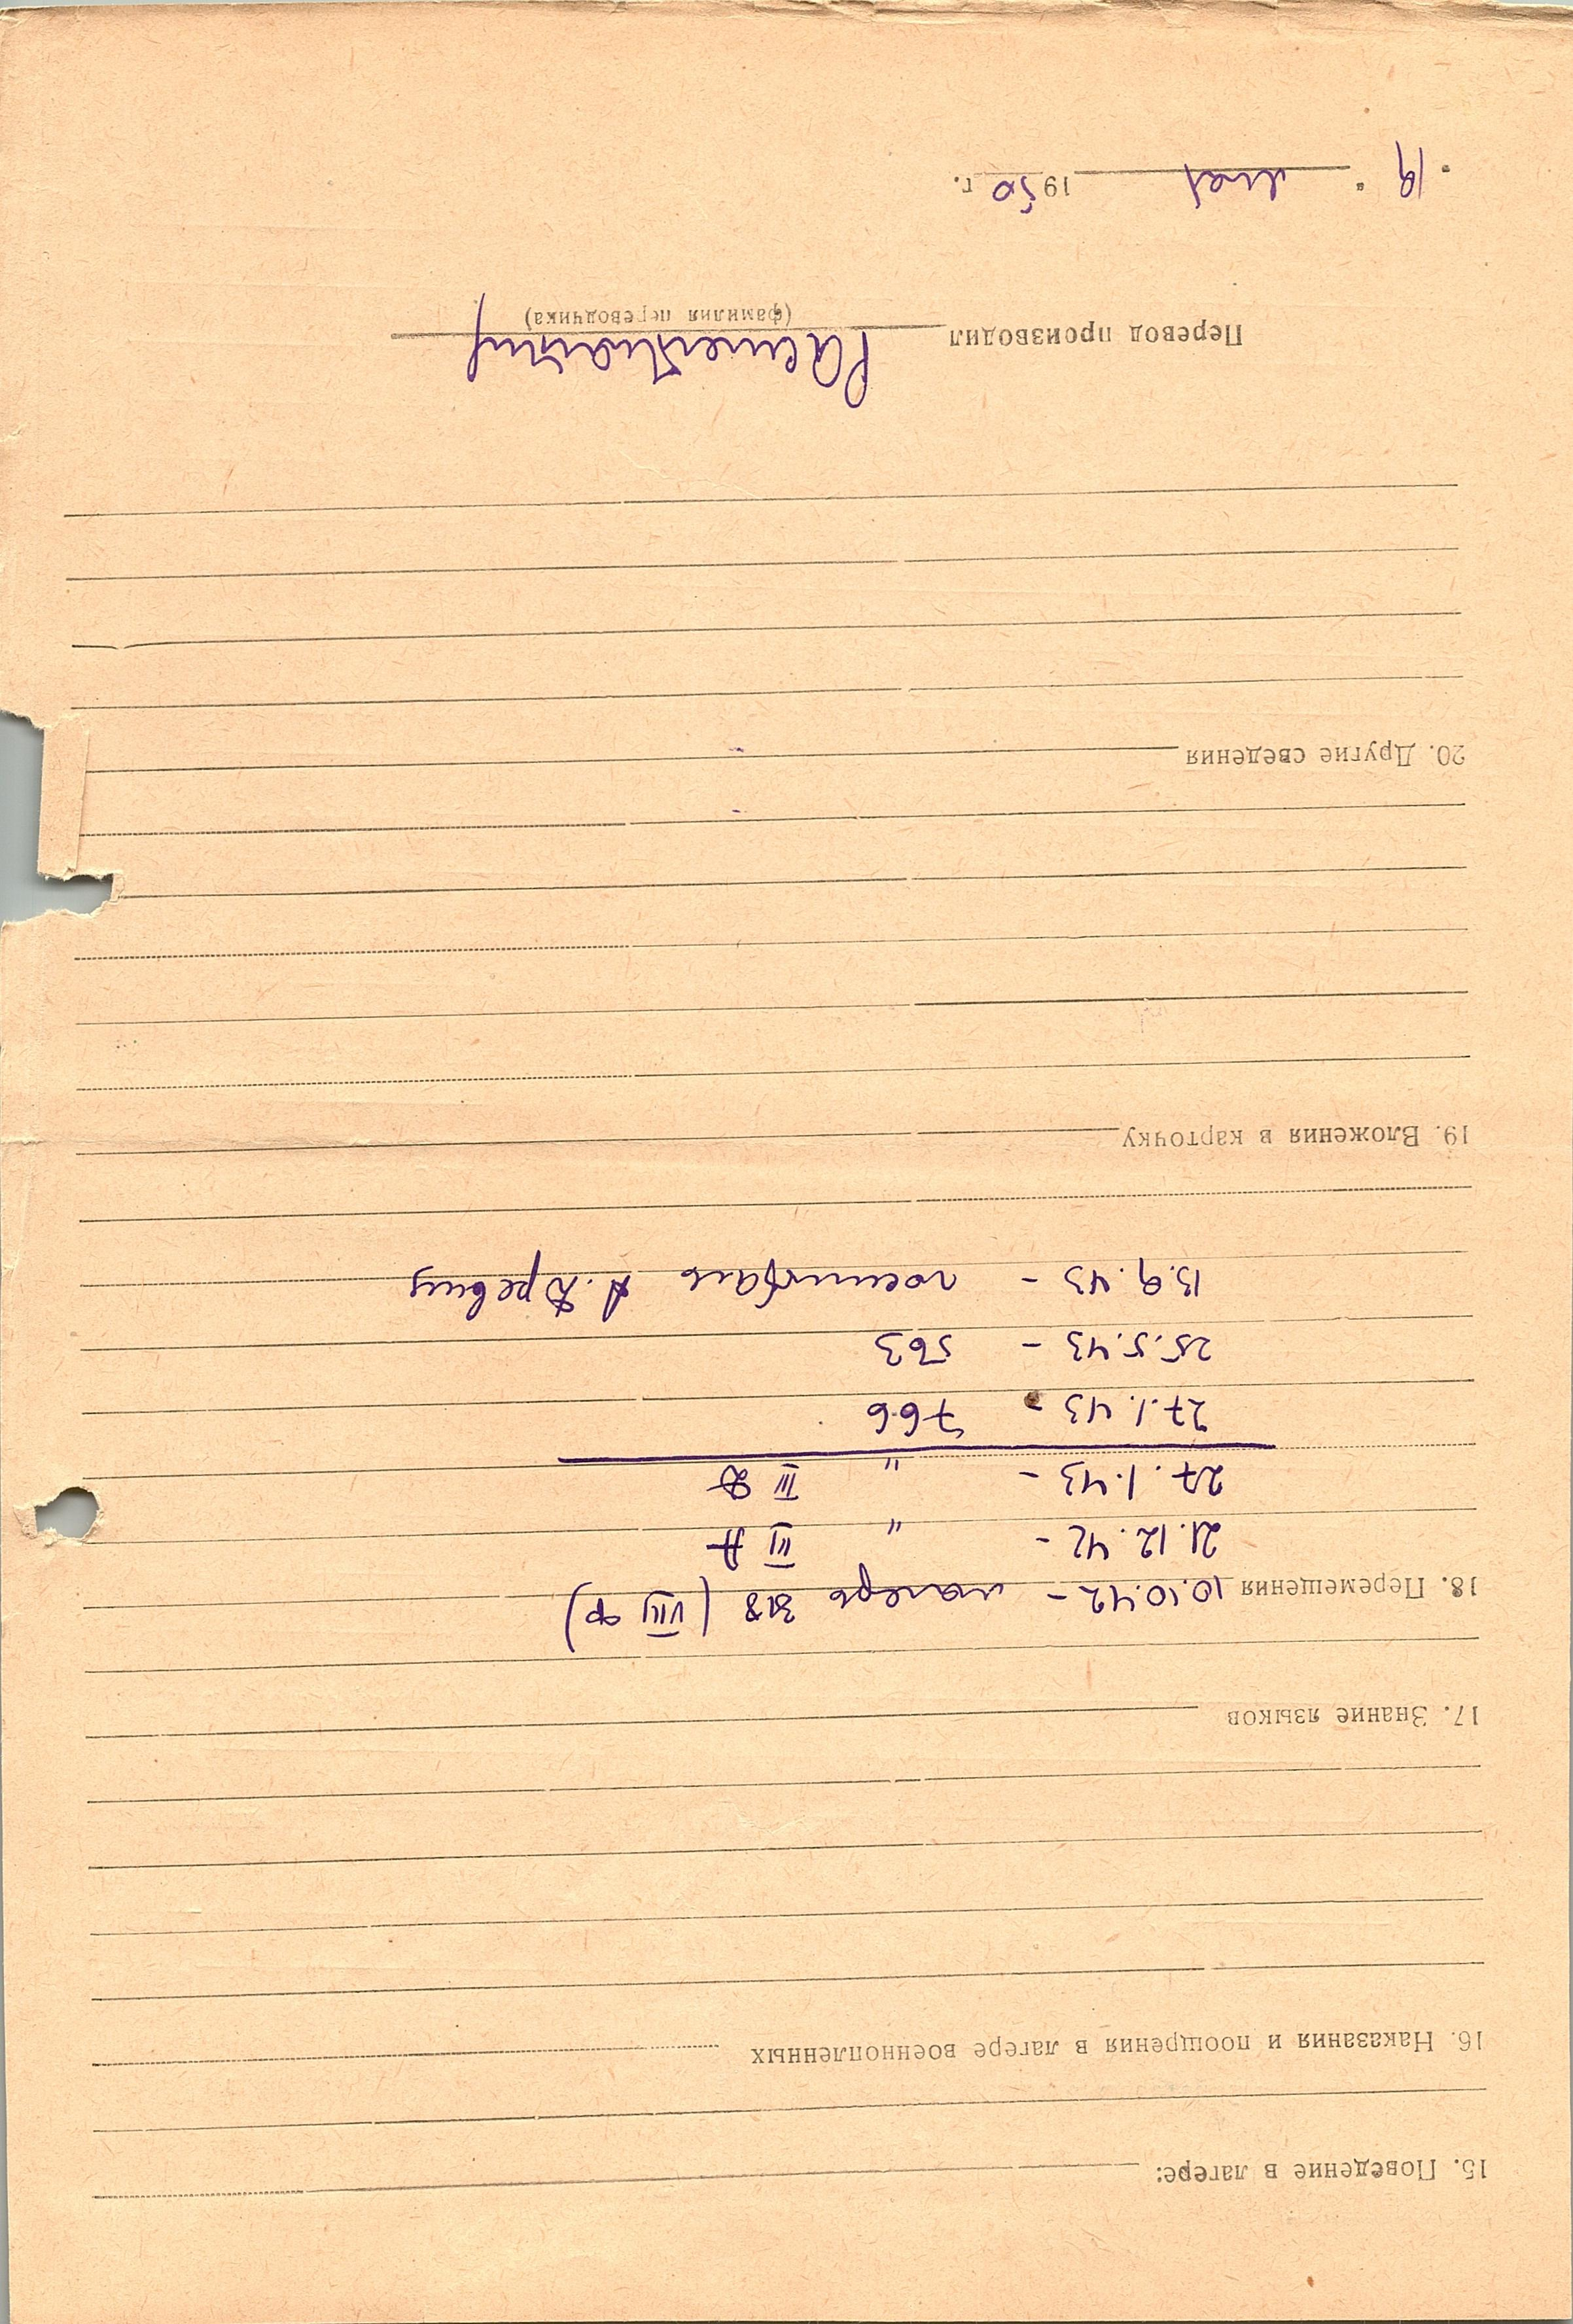 15. Поведение в лагере:
16. Наказания и поощрения в лагере военнопленных
17. Знание языков
18. Перемещения 10.10.42 – лагерь 318 (VIII Ф)
21.12.42 – " III А
27.1.43 – " III Д
27.1.43 – 766
25.5.43 – 563
13.9.43 – госпиталь А. Древиц
19. Вложения в карточку
20. Другие сведения
Перевод производил
(фамилия переводчика)
„19“ мая 1950 г.